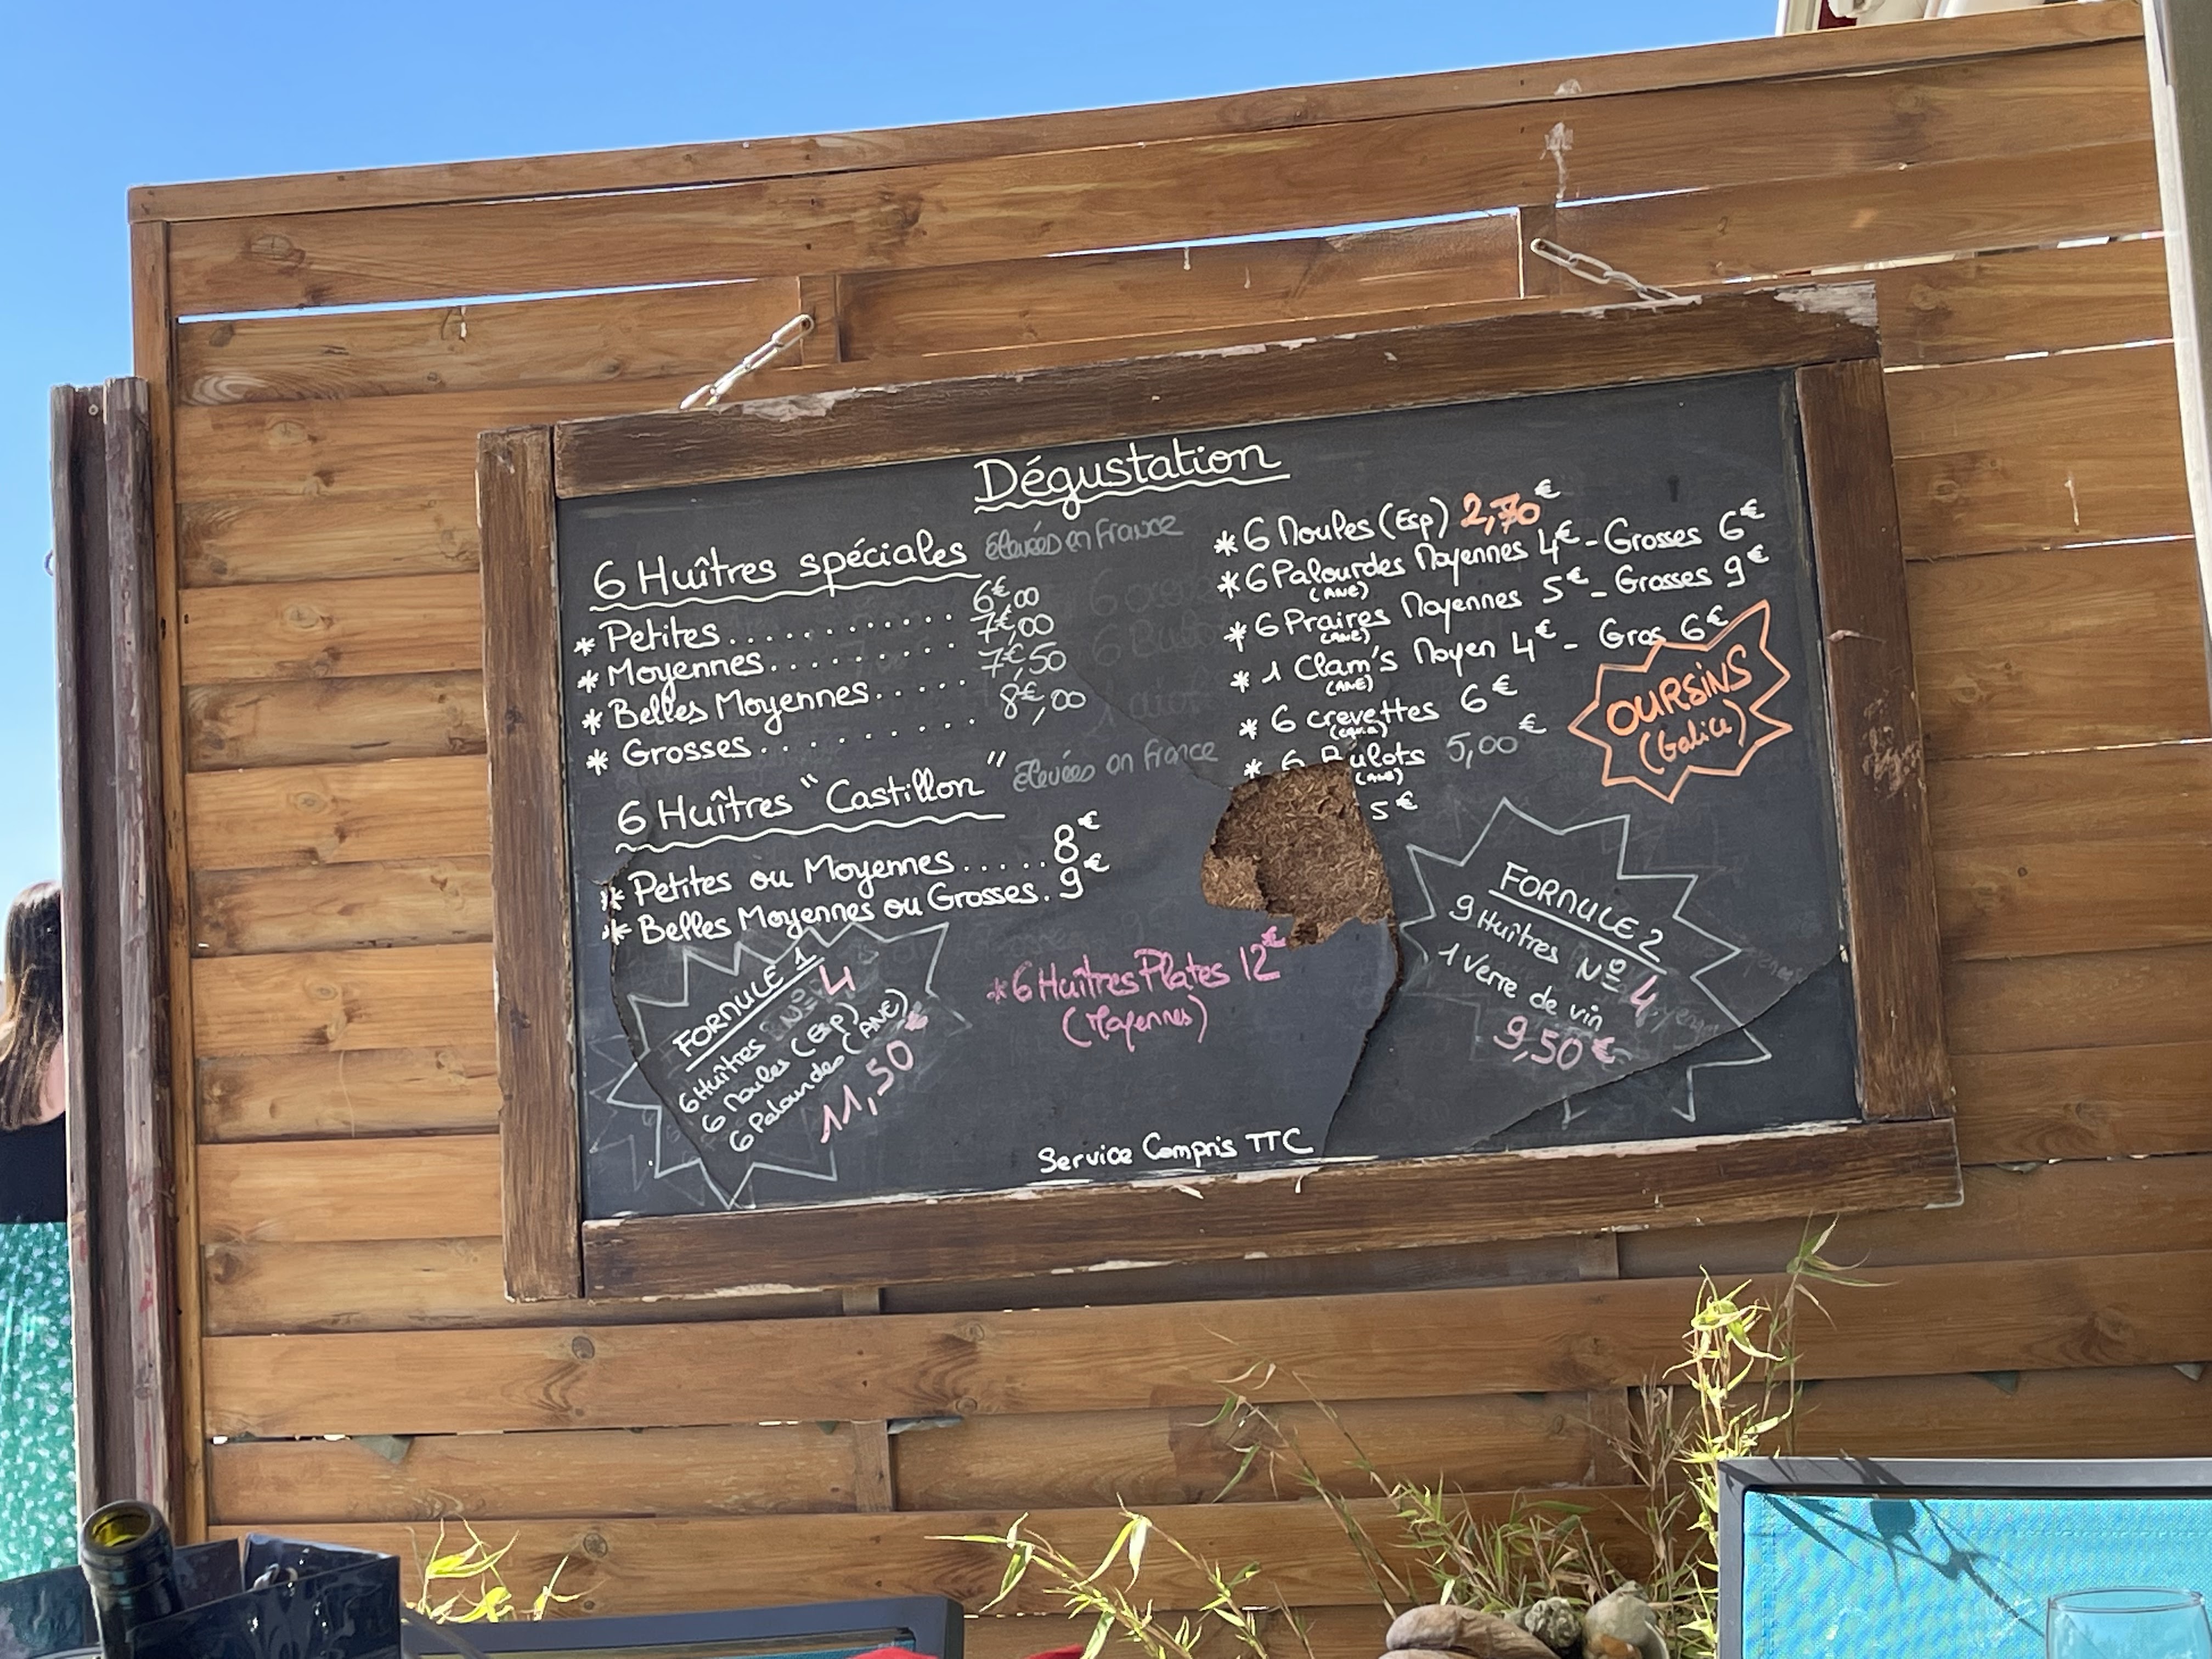 Dégustation
6 Huîtres spéciales élevées en France
* Petites............ 6€,00
* Moyennes......... 7€,00
* Belles Moyennes..... 7€,50
* Grosses......... 8€,00
6 Huîtres "Castillon" élevées en France
* Petites ou Moyennes..... 8€
* Belles Moyennes ou Grosses. 9€
* 6 Moules (Esp) 2,70€
* 6 Palourdes Moyennes 4€ - Grosses 6€
(ANE)
* 6 Praires Moyennes 5€ - Grosses 9€
(ANE)
* 1 Clam's Moyen 4€ - Gros 6€
(ANE)
* 6 crevettes 6€
* 6 Bulots 5,00€
(ANE)
5€
OURSINS
(Galice)
FORMULE 1
6 Huîtres N° 4
6 Moules (Esp)
6 Palourdes (ANE)
11,50€
* 6 Huîtres Plates 12€
(Moyennes)
FORMULE 2
9 Huîtres N° 4
1 Verre de vin
9,50€
Service Compris TTC